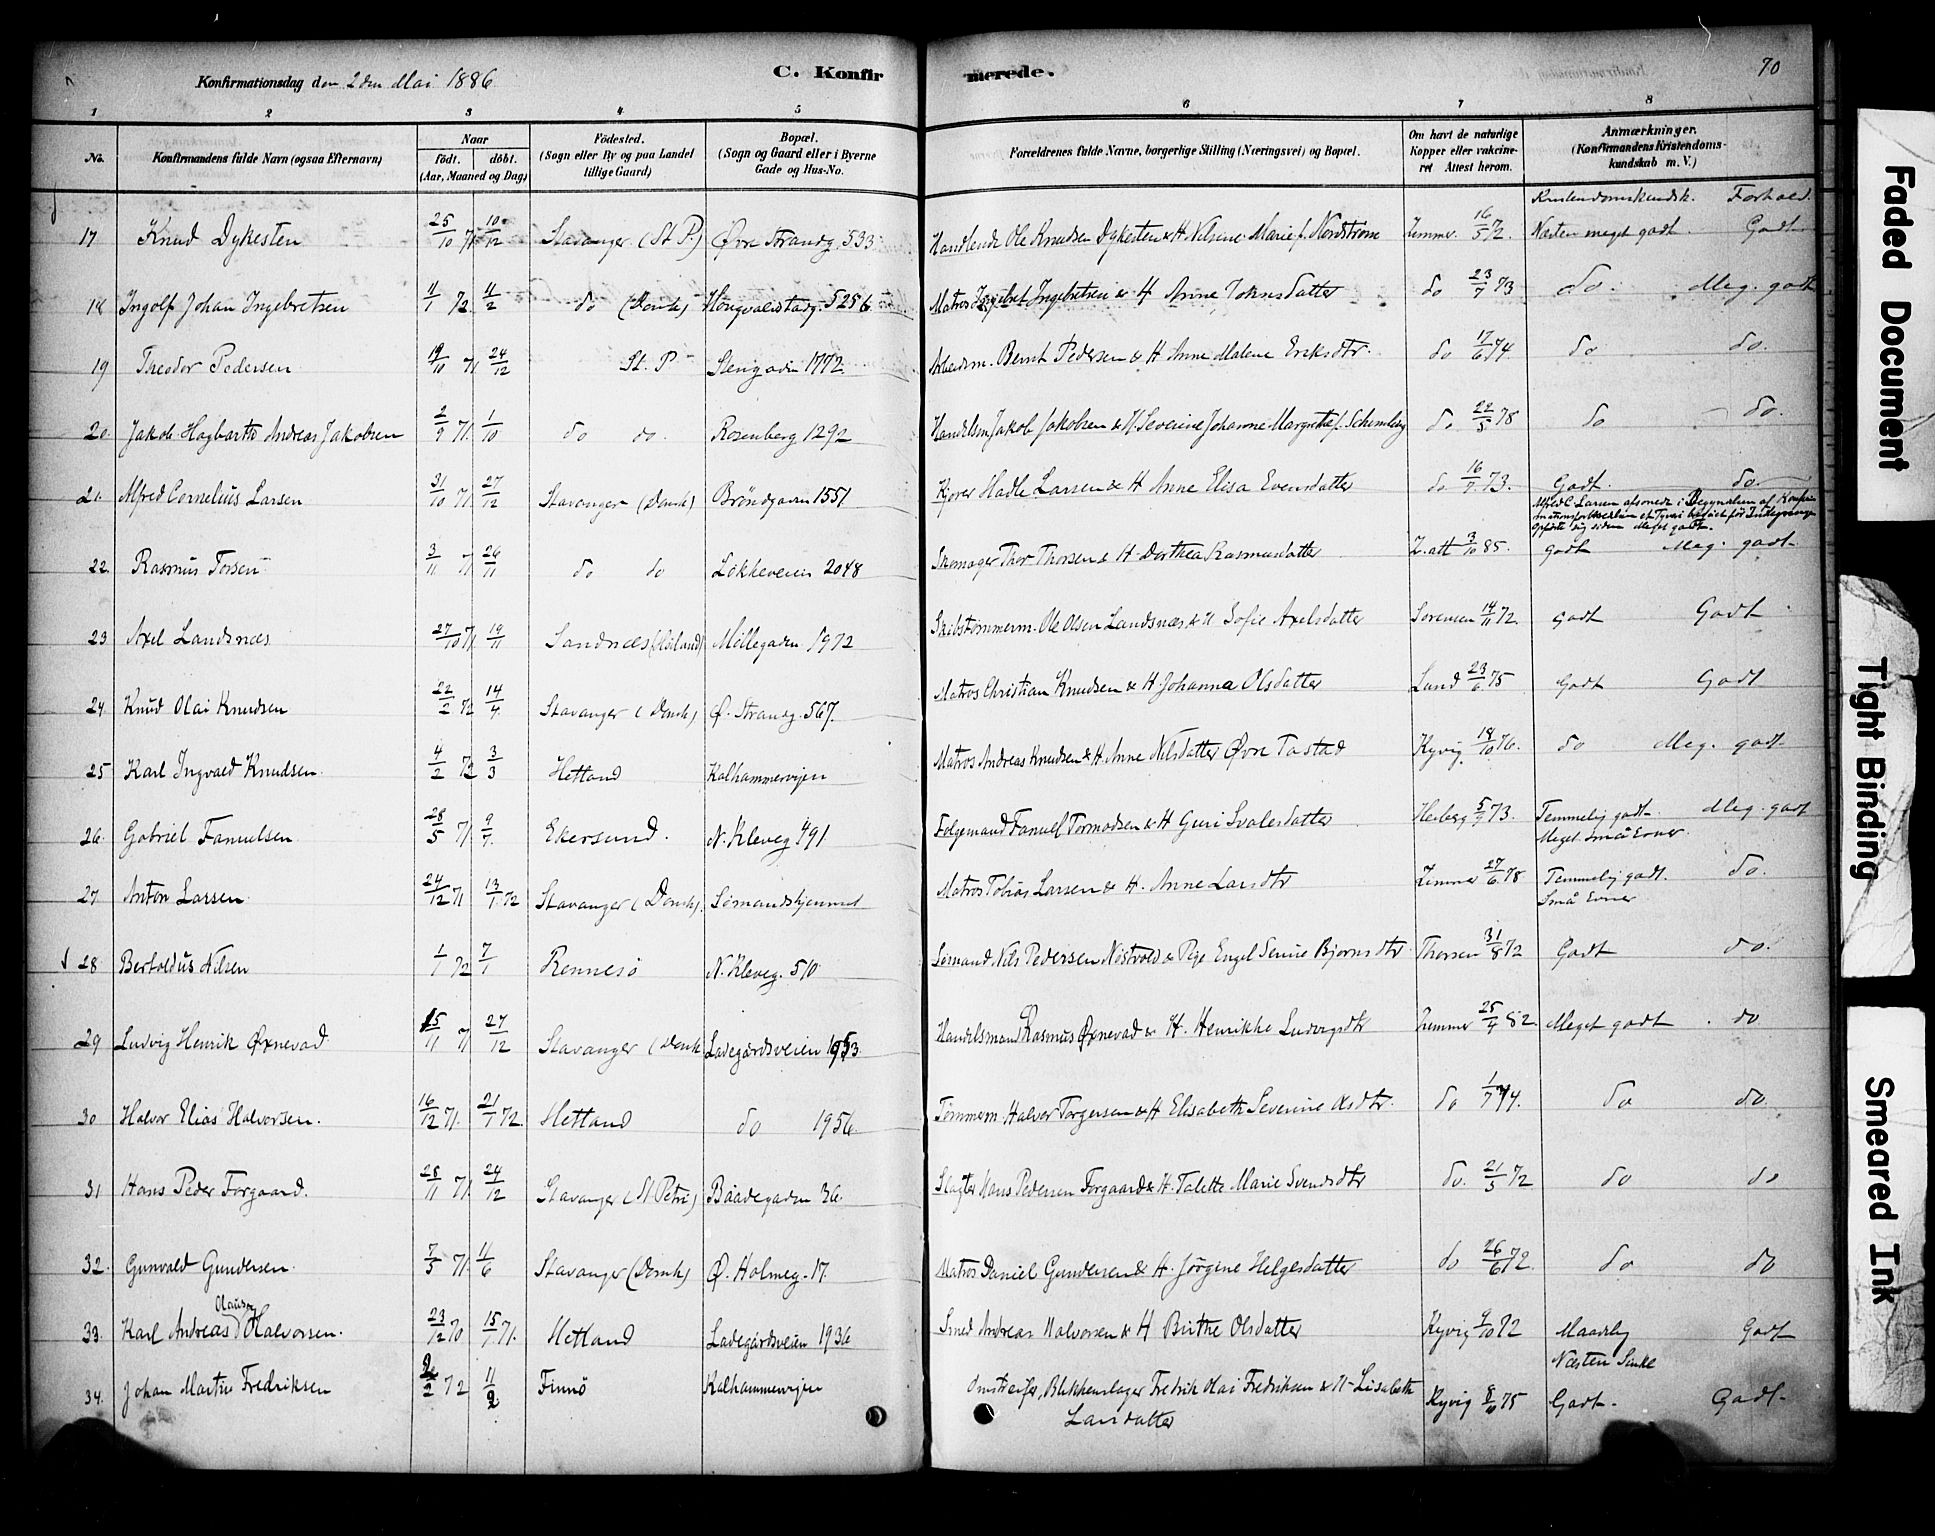 Konfirmationsdag den 2den Mai 1886
C. Konfirmerede.
70
1 2 3 4 5 6 7 8
No. Konfirmandens fulde Navn (ogsaa Efternavn) Naar født. døbt. (Aar, Maaned og Dag) Fødested. (Sogn eller By og paa Landet tillige Gaard) Bopæl. (Sogn og Gaard eller i Byerne Gade og Hus-No. Forældrenes fulde Navne, borgerlige Stilling (Næringsvei) og Bopæl. Om havt de naturlige Kopper eller vakcineret Attest herom. Anmærkninger. (Konfirmandens Kristendomskundskab m. V.)
Kristendomskundsk. Forhold.
17 Knud Dykesten 25/10 71 10/12 Stavanger (St P.) Øvre Strandg. 533 Handlende Ole Knudsen Dykesten & H. Nilsine Marie f. Nordstrøm Zemmer. 16/5 72. Næsten meget godt. Godt
18 Ingolf Johan Ingebretsen 11/1 72. 11/2 do (Domk) 525 6 Matros Ingebret Ingebretsen & H Anne Johnsdatter do 23/7 73 do. Meg. godt
19 Theodor Pedersen 19/10 71 24/12 St. P Stengaden 1772 Arbeidsm. Bernt Pedersen & H Anne Malene Eriksdtr. do 17/6 74 do do.
20. Jakob Hagbarth Andreas Jakobsen 2/9 71. 1/10 do do. Rosenberg 1292 Handelsm Jakob Jakobsen & H. Severine Johanne Margrethe f. do 22/5 78 do do.
21. Alfred Cornelius Larsen 31/10 71. 27/12 Stavanger (Domk) Brøndgaden 1551 Kjører Hadle Larsen & H Anne Elisa Evensdatter do 16/7 73. Godt. do
Alfred C Larsen afsonede i Begyndelsen af
opførte sig siden Meget godt.
22. Rasmus Torsen 3/11 71 26/11 do do Løkkeveien 2048 Skomager Thor Thorsen & H. Dorthea Rasmusdatter Z. att 3/10 85. godt Meg. godt
23 Axel Landsnæs 27/10 71 19/11 Sandnæs (Høiland) Møllegaden 1972 Skibstømmerm. Ole Olsen Landsnæs & H Sofie Axelsdatter Sørensen 14/11 72. godt Godt
24. Knud Olai Knudsen 22/2 72 14/4 Stavanger (Domk) Ø. Strandg. 567. Matros Christian Knudsen & H Johanna Olsdatter Lund 23/6 75 Godt Godt
25 Karl Ingvald Knudsen. 4/2 72 3/3 Hetland Kalhammervigen Matros Andreas Knudsen & H. Anne Nilsdatter Øvre Tastad Kyvig 18/10 76. do Meg. godt
26. Gabriel Fanuelsen 28/5 71 9/7 Ekersund. N. Kleveg 491 Følgemand Fanuel Tormodsen & H Guri Svalesdatter 5/9 73. Temmelig godt Meg. godt
Meget små Evner.
27. Anton Larsen 24/12 71 13/1 72 Stavanger (Domk). Sømandshjemmet Matros Tobias Larsen & H. Anne Larsdtr Zemmer 27/6 78 Temmelig godt. do.
Små Evner
28 Bertoldus Nilsen 1/1 72 7/1 Rennesø N. Kleveg. 510 Sømand Nils Pedersen Nøstvold & Pige Engel Serine Bjørnsdtr Thorsen 31/8 72 Godt do.
29 Ludvig Henrik Øxnevad 15/11 71 27/12 Stavanger (Domk Ladegårdsveien 1953 Handelsmand Rasmus Øxnevad & H. Henrikke Ludvigsdtr Zemmer 25/4 82. Meget godt do
30 Halvor Elias Halvorsen. 16/12 71. 21/1 72. Hetland do 1956. Tømmerm. Halvor Torgersen & H Elisabeth Severine Olsdtr. do 1/7 74. do do
31 Hans Peder Forgaard. 28/11 71. 24/12 Stavanger (St Petri) Baadegaden 36. Slagter Hans Pedersen Forgaard & H. Talette Marie Svendsdtr do. 21/5 72 do do
32. Gunvald Gundersen. 7/5 71. 11/6 Stavanger (Domk) Ø. Holmeg. 17. Matros Daniel Gundersen & H. Jørgine Helgesdatter do 26/6 72. do do
33. Karl Andreas Olaus Halvorsen. 23/12 70 15/1 71. Hetland Ladegårdsveien 1936 Smed Andreas Halvorsen & H Birthe Olsdatter Kyvig 9/10 72 Maadelig Godt
Næsten Sinke
34. Johan Martin Fredriksen 2/2 72 11/2 Finnø Kalhammervigen Omstreifer, Blikkenslager Fredrik Olai Fredriksen & H. Lisabeth Kyvig 8/11 75 Godt. Godt.
Larsdatter
Faded Document
Tight Binding
Smeared Ink